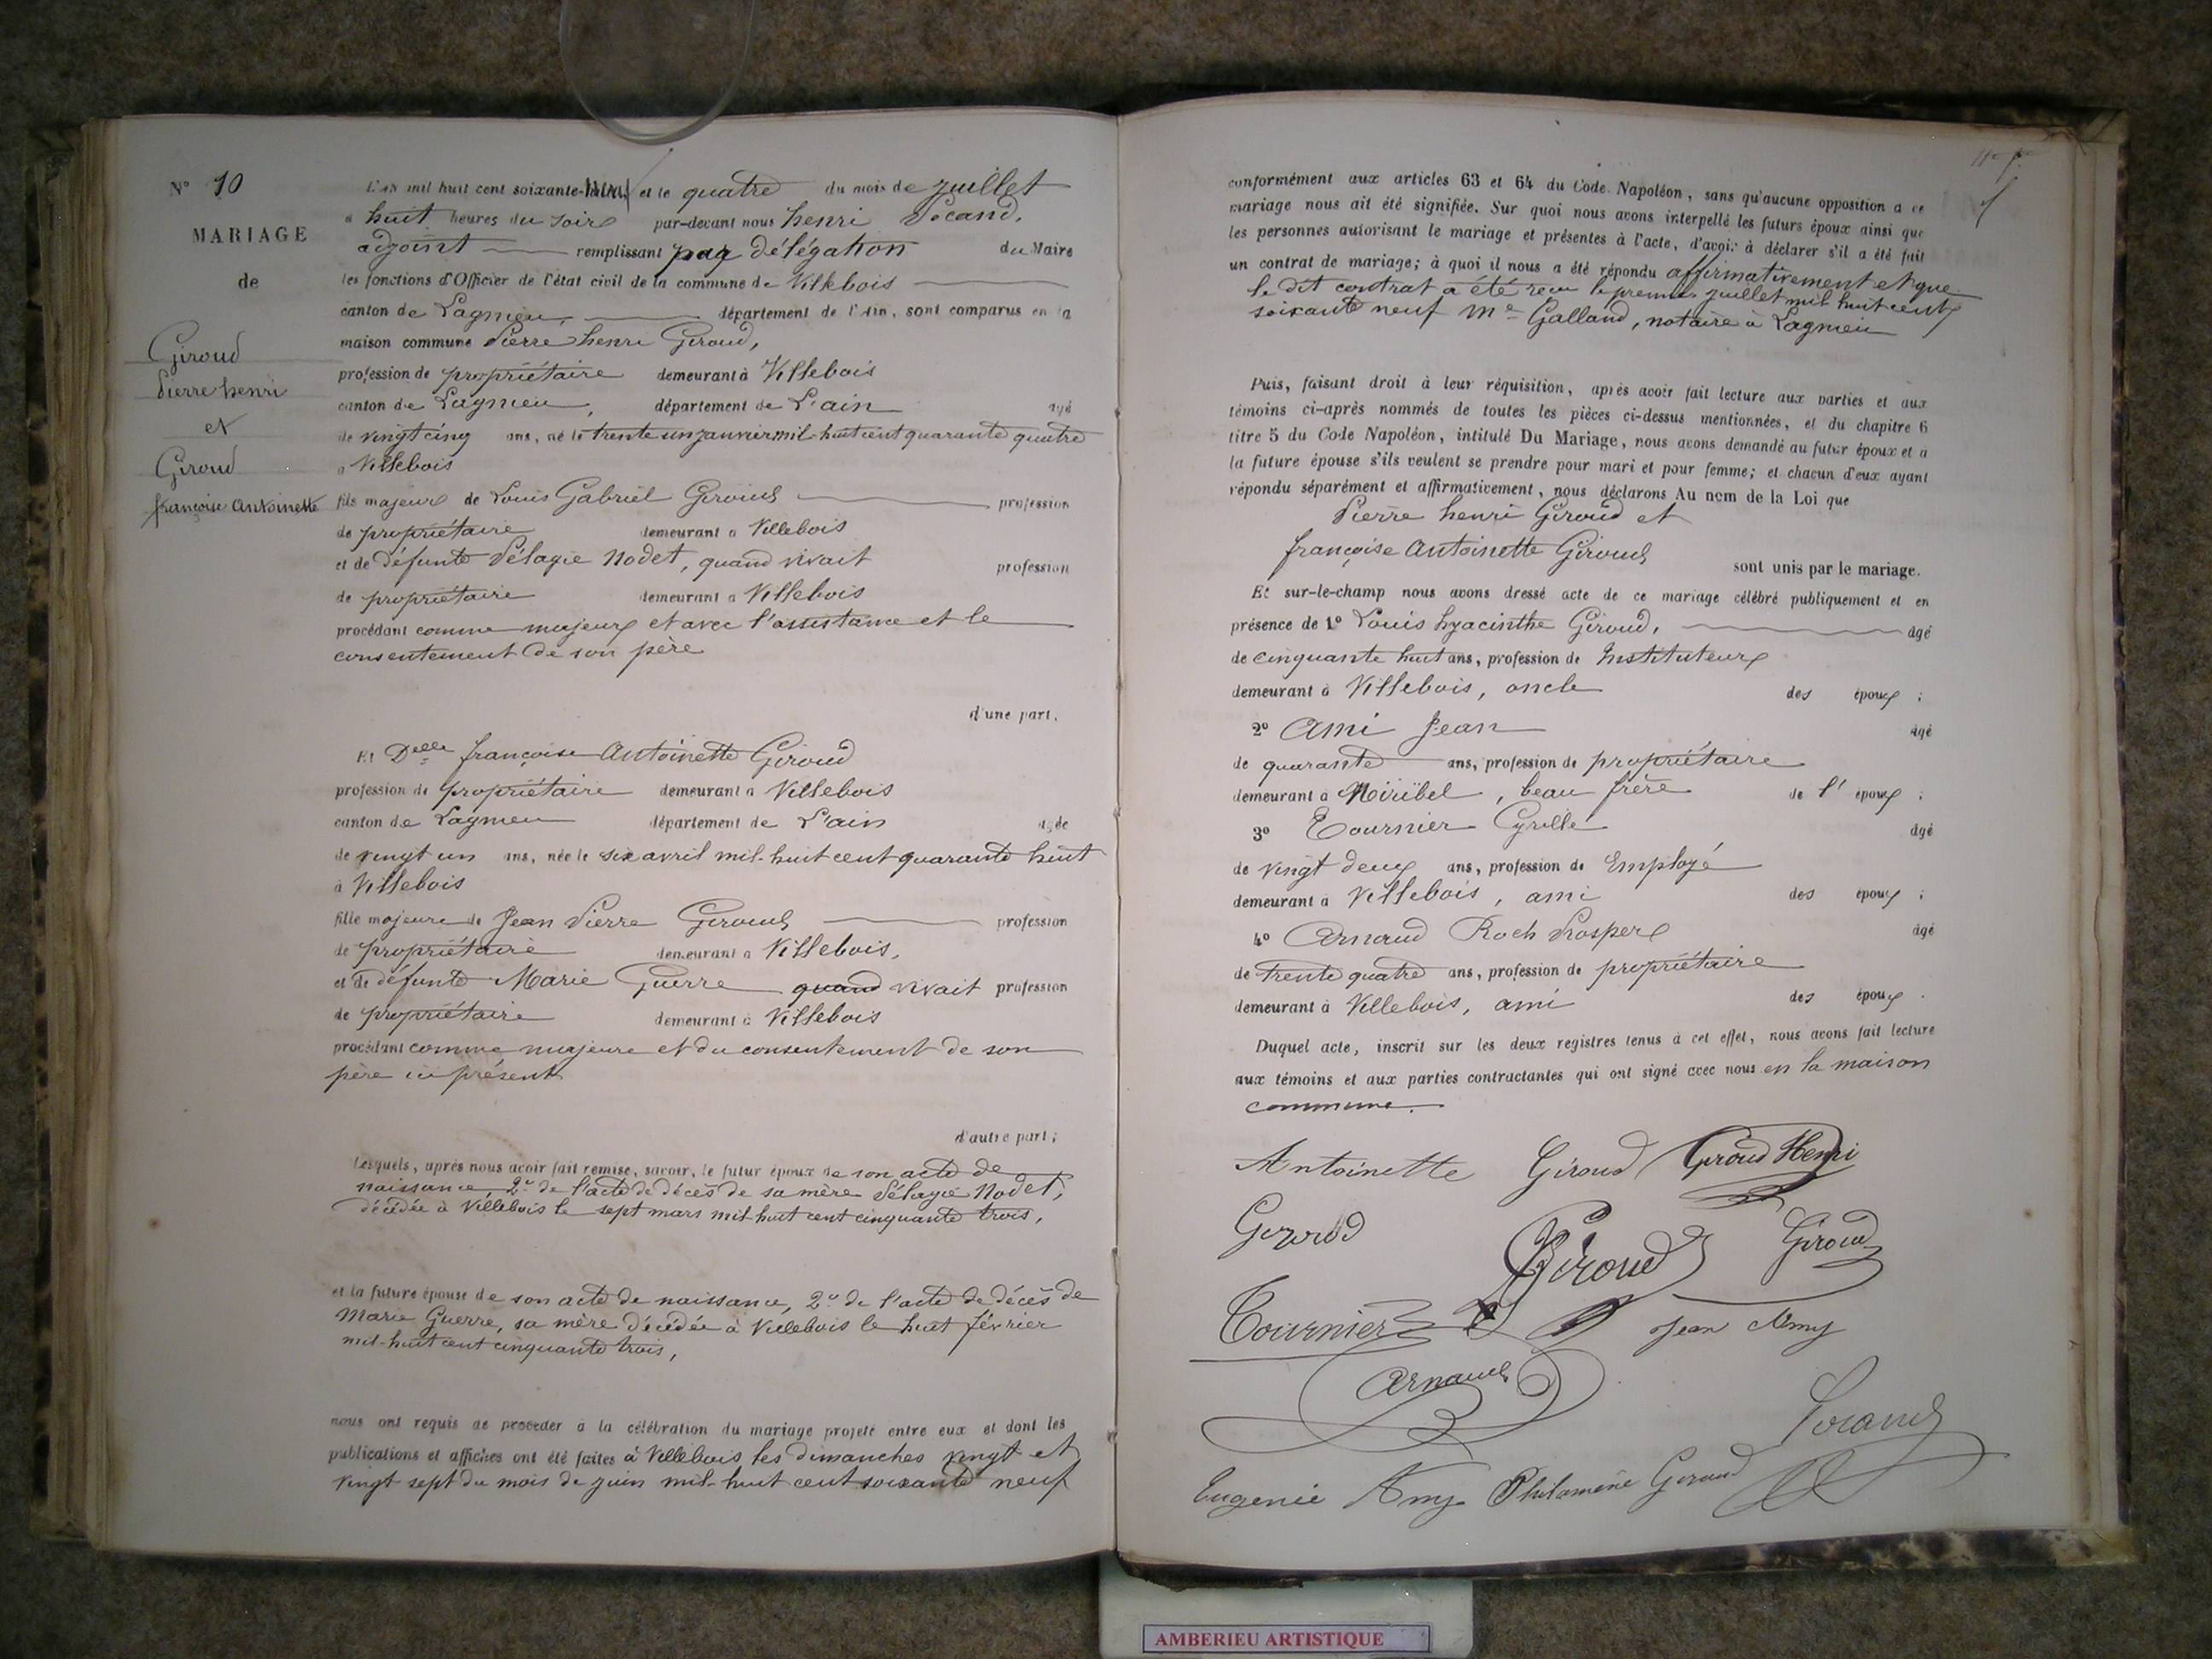 N° 10
MARIAGE
de
Giroud
Pierre henri
et
Giroud
françoise Antoinette
L'an mil huit cent soixante- et le quatre du mois de juillet
à huit heures du soir par-devant nous henri
adjoint remplissant par délégation du Maire
les fonctions d'Officier de l'état civil de la commune de Villebois
canton de Lagnieu, département de l'Ain, sont comparus en la
maison commune Pierre henri Giroud,
profession de propriétaire demeurant à Villebois
canton de Lagnieu, département de L'ain âgé
de vingt cinq ans, né le trente un janvier mil-huit cent quarante quatre
à Villebois
fils majeur de Louis Gabriel Giroud profession
de propriétaire demeurant à Villebois
et de défunte Pélagie Nodet, quand vivait profession
de propriétaire demeurant à Villebois
procédant comme majeur et avec l'assistance et le
consentement de son père
d'une part.
Et Delle françoise Antoinette Giroud
profession de propriétaire demeurant à Villebois
canton de Lagnieu département de L'ain âgée
de vingt un ans, née le six avril mil-huit cent quarante huit
à Villebois
fille majeure de Jean Pierre Giroud profession
de propriétaire demeurant à Villebois,
et de défunte Marie Guerre quand vivait profession
de propriétaire demeurant à Villebois
procédant comme majeure et du consentement de son
père ici présent
d'autre part;
Lesquels, après nous avoir fait remise, savoir, le futur époux de son acte de
naissance, 2° de l'acte de décès de sa mère Pélagie Nodet,
décédée à Villebois le sept mars mil-huit cent cinquante trois,
et la future épouse de son acte de naissance, 2° de l'acte de décès de
Marie Guerre, sa mère décédée à Villebois le huit février
mil-huit cent cinquante trois,
nous ont requis de procéder à la célébration du mariage projeté entre eux et dont les
publications et affiches ont été faites à Villebois les dimanches vingt et
vingt sept du mois de juin mil-huit cent soixante neuf
conformément aux articles 63 et 64 du Code Napoléon, sans qu'aucune opposition a ce
mariage nous ait été signifiée. Sur quoi nous avons interpellé les futurs époux ainsi que
les personnes autorisant le mariage et présentes à l'acte, d'avoir à déclarer s'il a été fait
un contrat de mariage; à quoi il nous a été répondu affirmativement et que
le dit contrat a été reçu le premier juillet mil huit cent
soixante neuf Me Galland, notaire à Lagnieu
Puis, faisant droit à leur réquisition, après avoir fait lecture aux parties et aux
témoins ci-après nommés de toutes les pièces ci-dessus mentionnées, et du chapitre 6
titre 5 du Code Napoléon, intitulé Du Mariage, nous avons demandé au futur époux et à
la future épouse s'ils veulent se prendre pour mari et pour femme; et chacun d'eux ayant
répondu séparément et affirmativement, nous déclarons Au nom de la Loi que
Pierre henri Giroud et
françoise Antoinette Giroud
sont unis par le mariage.
Et sur-le-champ nous avons dressé acte de ce mariage célébré publiquement et en
présence de 1° Louis hyacinthe Giroud, âgé
de cinquante huit ans, profession de Instituteur
demeurant à Villebois, oncle des époux ;
2° Ami Jean âgé
de quarante ans, profession de propriétaire
demeurant à Miribel, beau frère de l'époux ;
3° Tournier Cyrille âgé
de vingt deux ans, profession de Employé
demeurant à Villebois, ami des époux ;
4° Arnaud Roch Prosper âgé
de trente quatre ans, profession de propriétaire
demeurant à Villebois, ami des époux .
Duquel acte, inscrit sur les deux registres tenus à cet effet, nous avons fait lecture
aux témoins et aux parties contractantes qui ont signé avec nous en la maison
commune.
Antoinette Giroud Giroud Henri
Giroud Giroud Giroud
Tournier Jean Amy
Arnaud
Eugenie Amy Philomène Giroud
AMBERIEU ARTISTIQUE